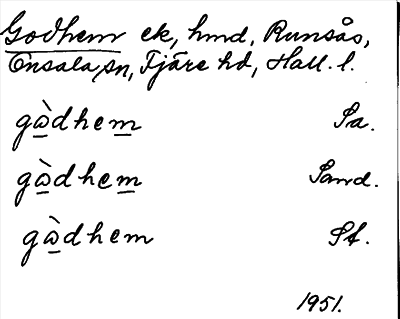 Godhem ek, hmd, Runsås,
Onsala sn, Fjäre hd, Hall. l.
gὼdhem Sa.
gὼdhem Sand.
gὼdhem St.
1951.